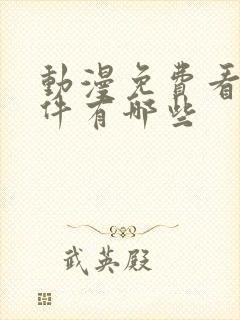 動漫免費看
件有哪些
武英殿